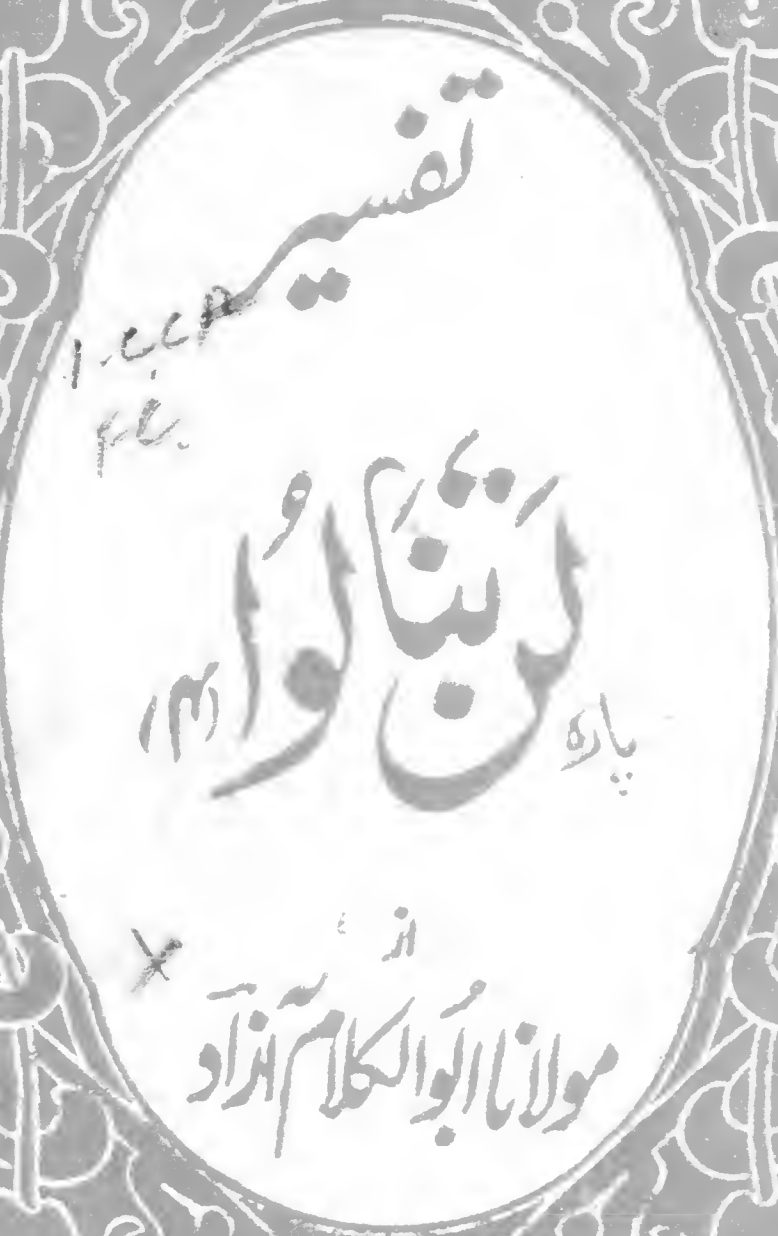 تفسیر
پارہ لَنْ تَنَالُوا (۴)
از
مولانا ابُو الکلام آزاد